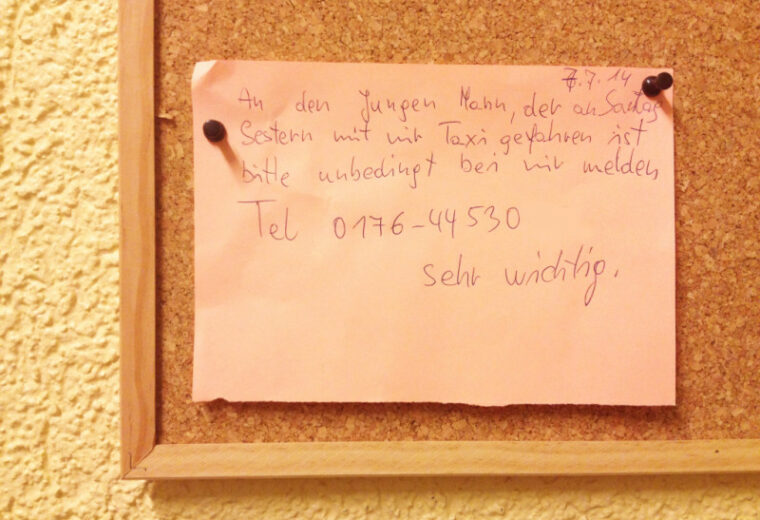 7.7.14
An den Jungen Mann, der an Sontag
Sestern mit mir Taxi gefahren ist
bitte unbedingt bei mir melden
Tel 0176-44530
sehr wichtig.